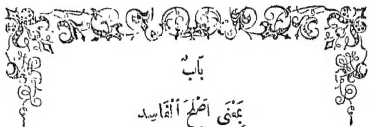 بَابٌ
بِمَعْنَى اَصْلَحَ اَلْفَاسِد